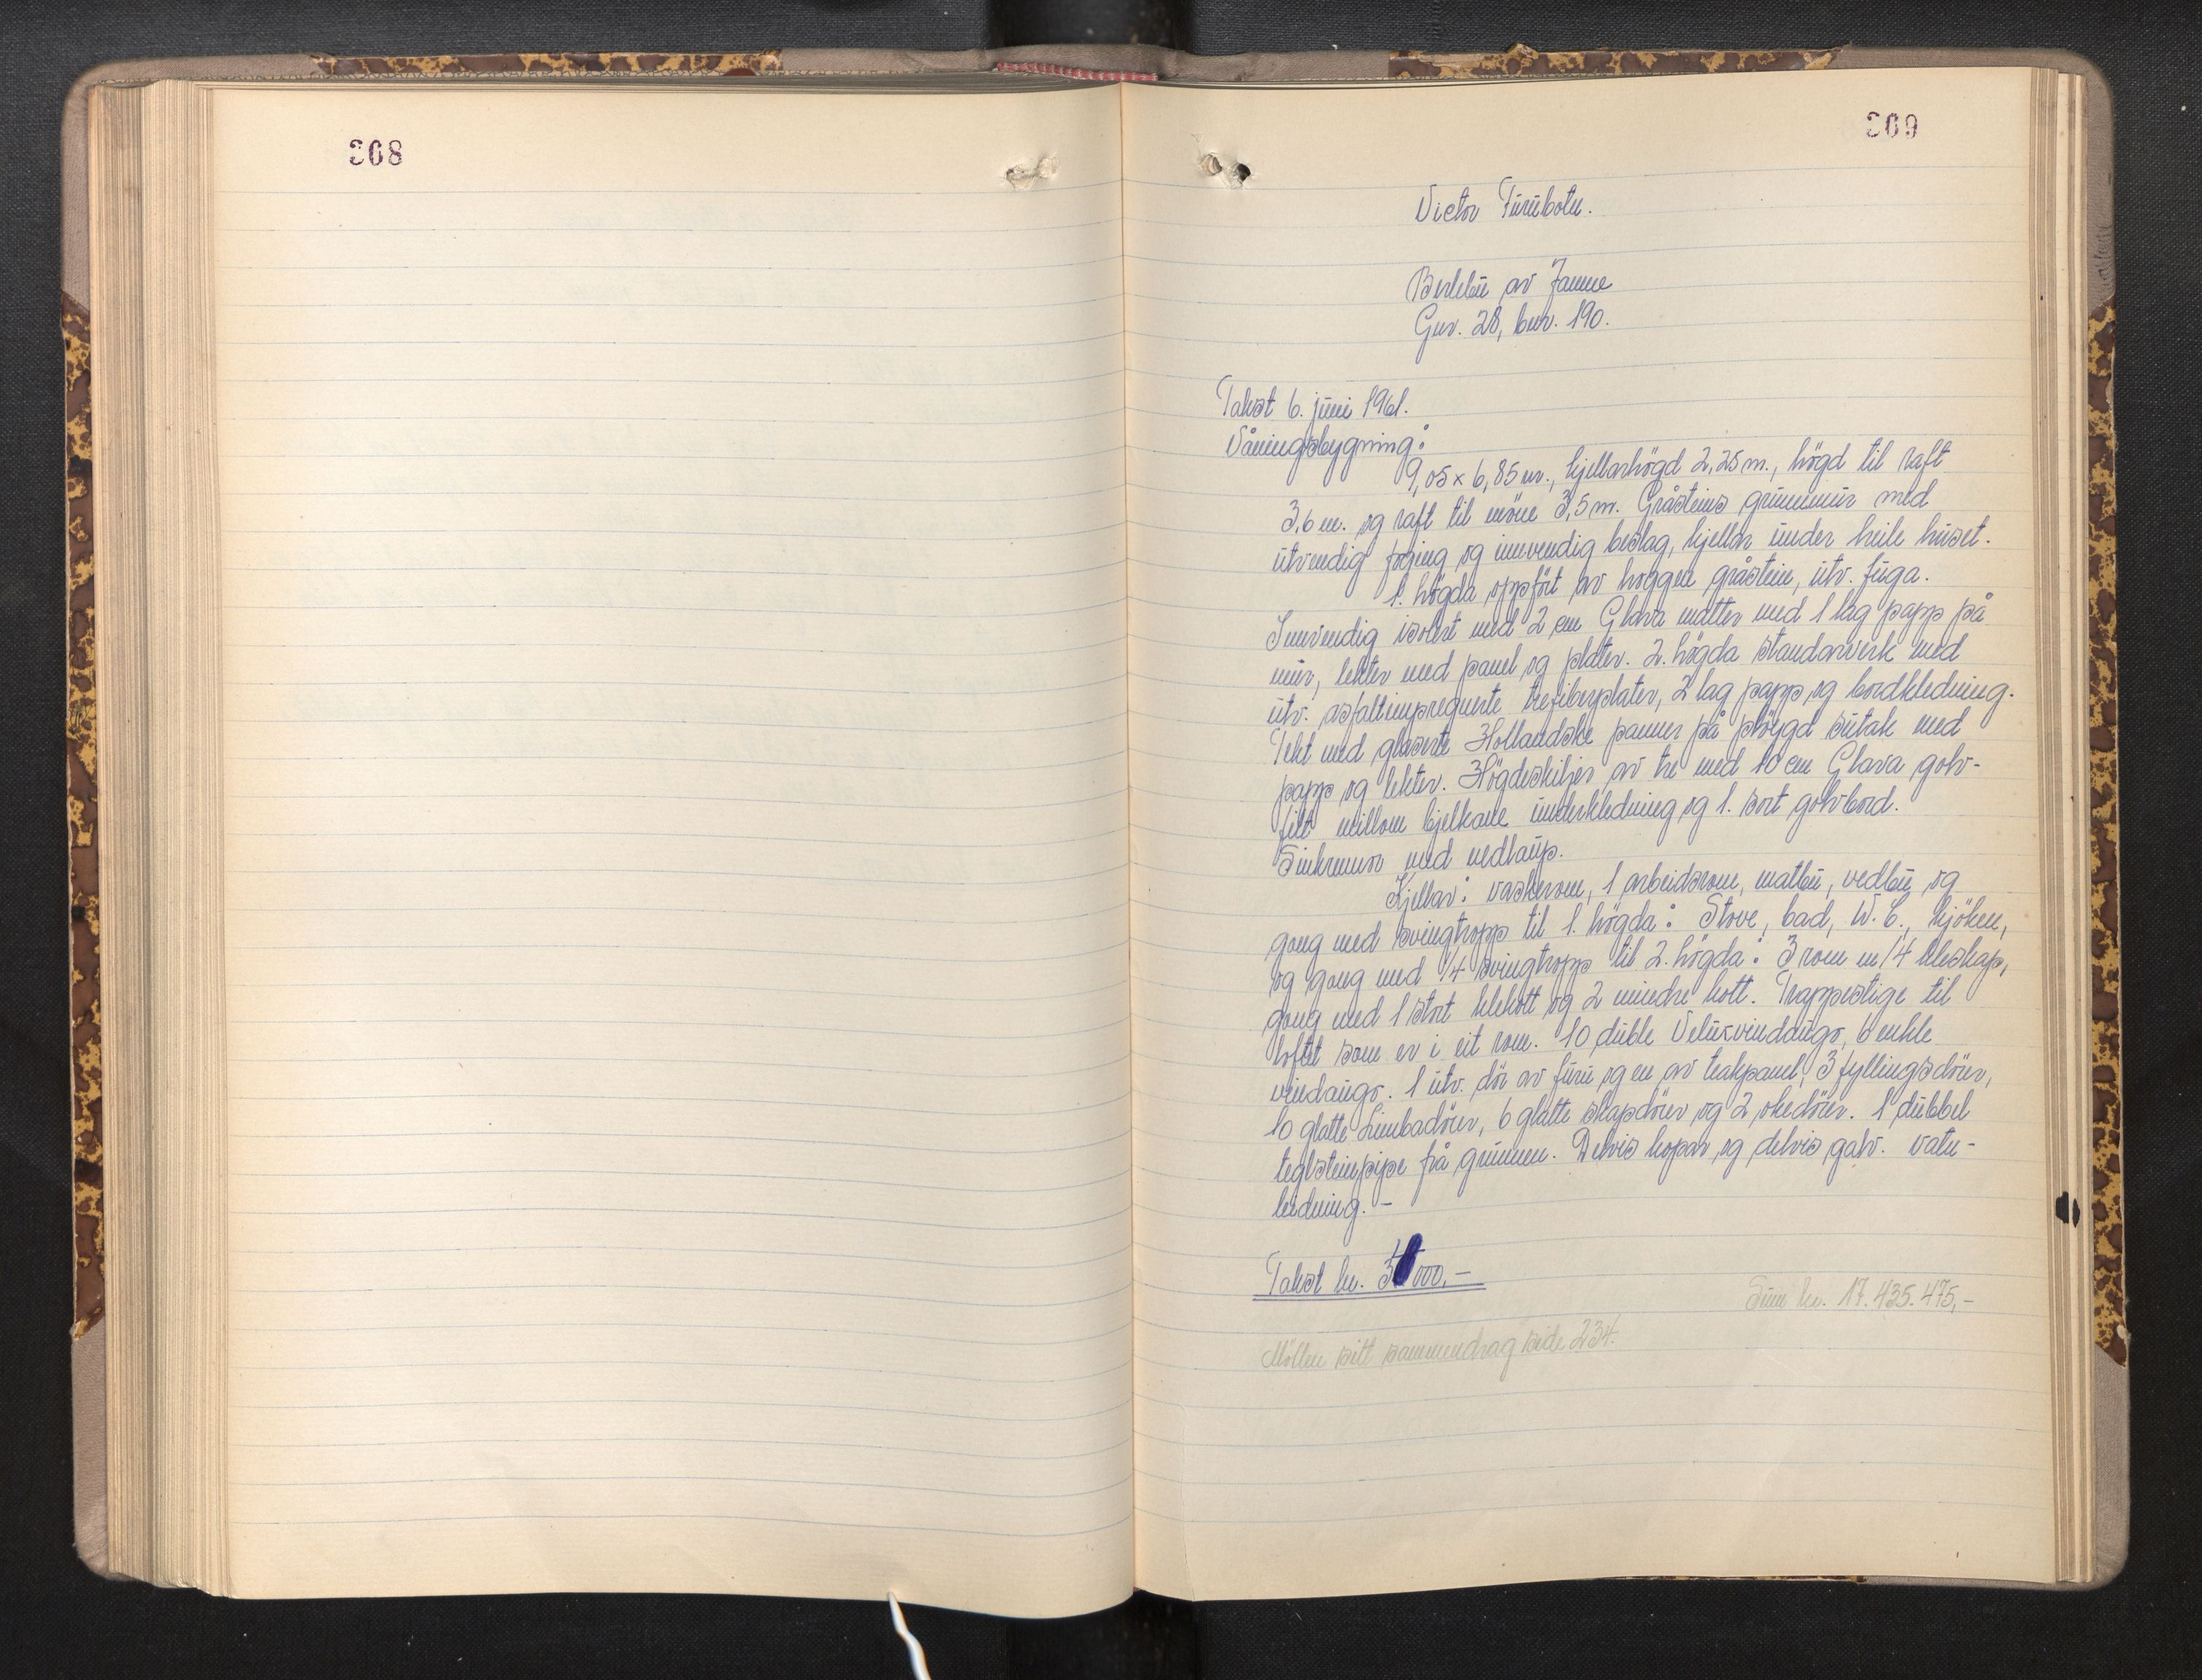 308
309
Victor Furubotn.
av Janne
Gnr. 28, bnr. 190.
Takst 6. juni 1961.
Våningsbygning:
9,05 x 6,85 m., kjellarhögd 2,25 m., högd til raft
3,6 m. og raft til möne 3,5 m. Gråsteins grunnmur med
utvendig foging og innvendig beslag, kjellar under heile huset.
1. högda oppfört av hoggen gråstein, utv. fuga.
Innvendig isolert med 2 cm Glava matter med 1 lag papp på
mur, lekter med panel og plater. 2. högda standarverk med
utv. asfaltimpregnerte trefiberplater, 2 lag papp og bordkledning.
Tekt med glaserte Hollandske panner på plöygd sutak med
papp og lekter. Högdeskiljer av tre med 10 cm Glava golv-
filt millom bjelkane underkledning og 1. sort golvbord.
Sinkrenner med nedlaup.
Kjellar: vaskerom, 1 arbeidsrom, matbu, vedbu og
gong med svingtropp til 1. högda: Stove, bad, W.C., kjöken,
og gong med 1/4 svingtropp til 2. högda: 3 rom m/4 kleskap,
gong med 1 stort klekott og 2 mindre kott. Trappestige til
loftet som er i eit rom. 10 duble Veluxvindaugo, 6 enkle
vindaugo. 1 utv. dör av furu og en av teakpanel, 3 fyllingsdörer,
10 glatte Limbadörer, 6 glatte skapdörer og 2 okedörer. 1 dubbel
teglsteinspipe frå grunnen. Delvis kopar og delvis galv. vatn-
leidning. -
Takst kr. 000,-
Sum kr. 17.435.475,-
sitt sammendrag side 234.